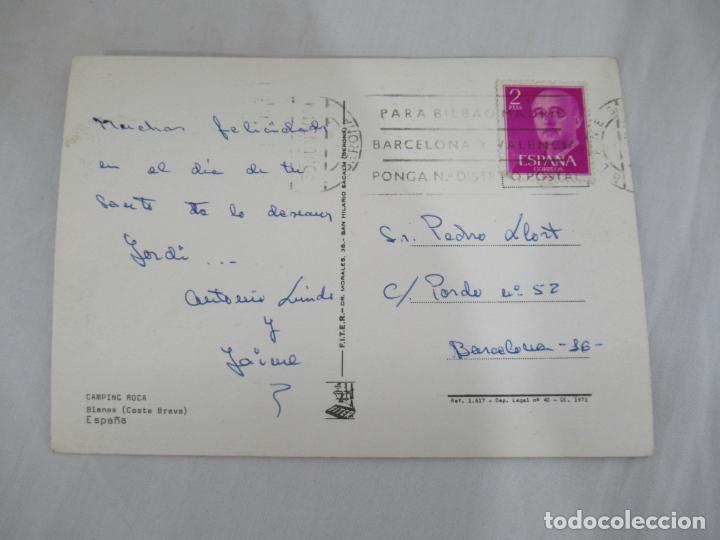 Muchas felicidades
en el día de tu
Santo te lo desean
Jordi ...
Antonio Lindo
y
Jaime
CAMPING ROCA
Blanes (Costa Brava)
España
F.I.T.E.R. - DR. MORALES, 36. - SAN HILARIO SACALM (GERONA)
PARA BILBAO MADRID
BARCELONA Y VALENCIA
PONGA N.º DISTRITO POSTAL
2
PTAS
ESPAÑA
CORREOS
Sr. Pedro Llort
C/ Pardo nº 52
Barcelona -16-
Ref. 1.617 - Dep. Legal nº 40 - GE. 1971
todocoleccion
todocoleccion.net